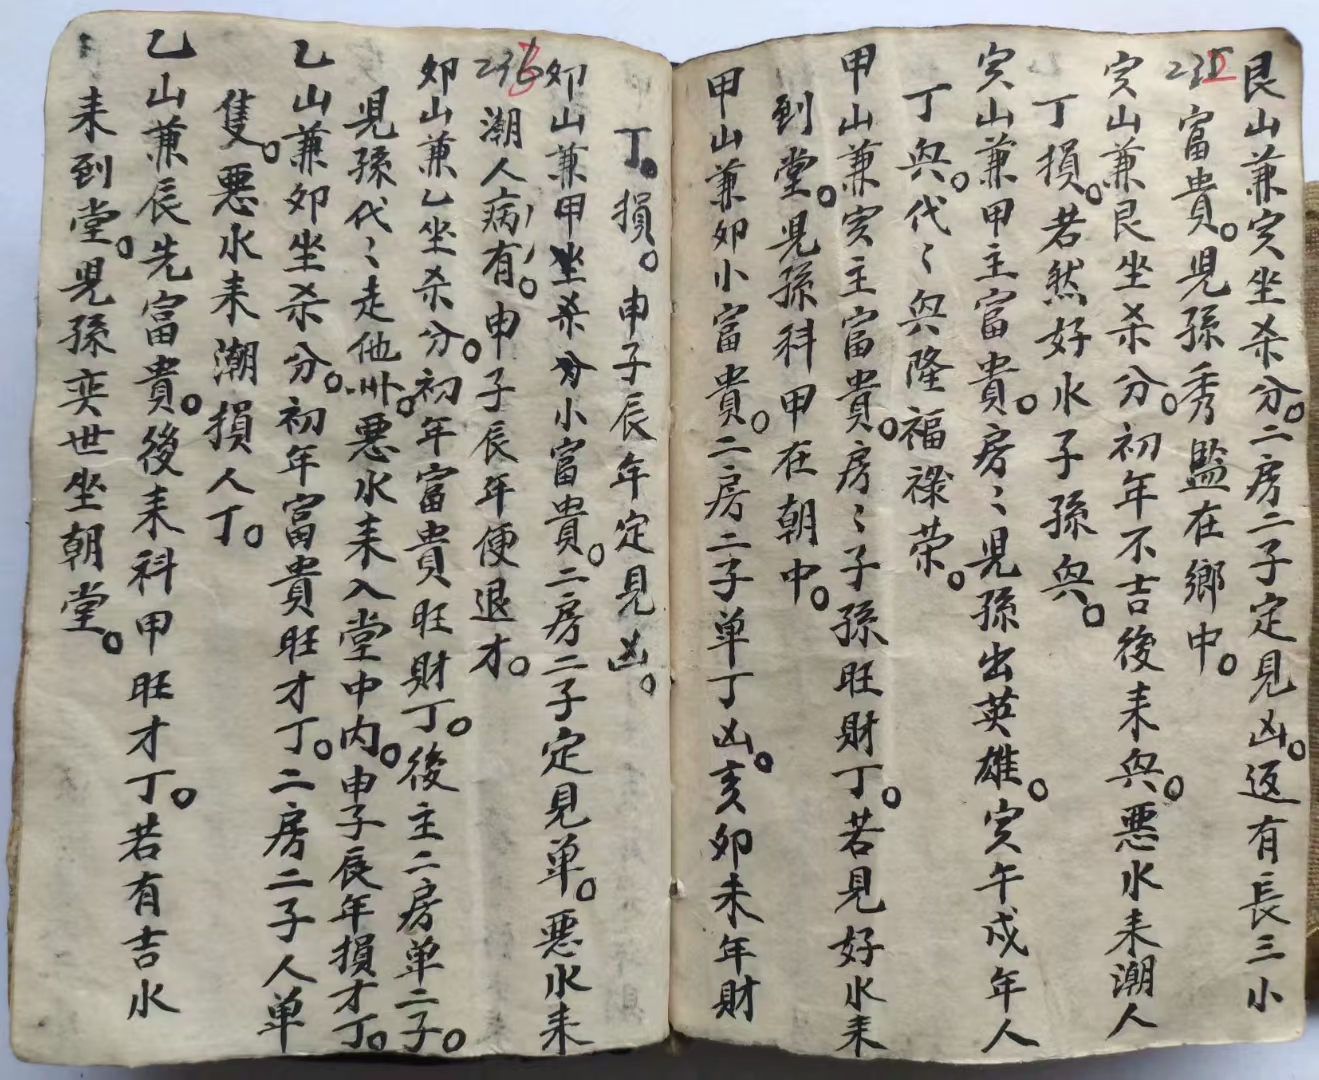 艮山兼寅坐杀分。二房二子定見凶。返有長三小
235
富貴。児孫秀監在鄉中。
寅山兼艮坐杀分。初年不吉後耒興。悪水耒潮人
丁損。若然好水子孫興。
寅山兼甲主富貴。房〻児孫出英雄。寅午戌年人
丁興。代〻興隆福禄荣。
甲山兼寅主富貴。房〻子孫旺財丁。若見好水耒
到堂。児孫科甲在朝中。
甲山兼卯小富貴。二房二子单丁凶。亥卯未年財
丁。損。申子辰年定見凶。
卯山兼甲坐杀分小富貴。二房二子定見单。悪水耒
236
潮人病有。申子辰年便退才。
卯山兼乙坐杀分。初年富貴旺財丁。後主二房单二子。
児孫代〻走他州。悪水耒入堂中内。申子辰年損才丁。
乙山兼卯坐杀分。初年富貴旺才丁。二房二子人单
隻。悪水耒潮損人丁。
乙山兼辰先富貴。後耒科甲旺才丁。若有吉水
耒到堂。児孫奕世坐朝堂。